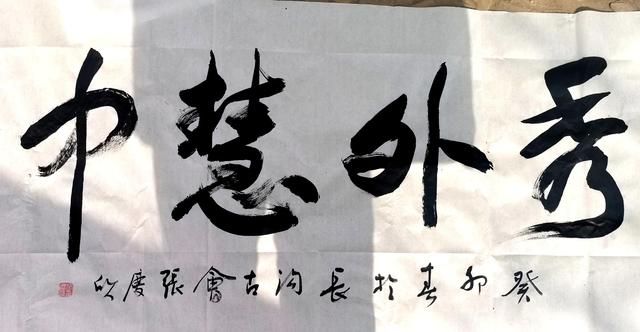 秀外慧中
癸卯春於長沟古會張慶